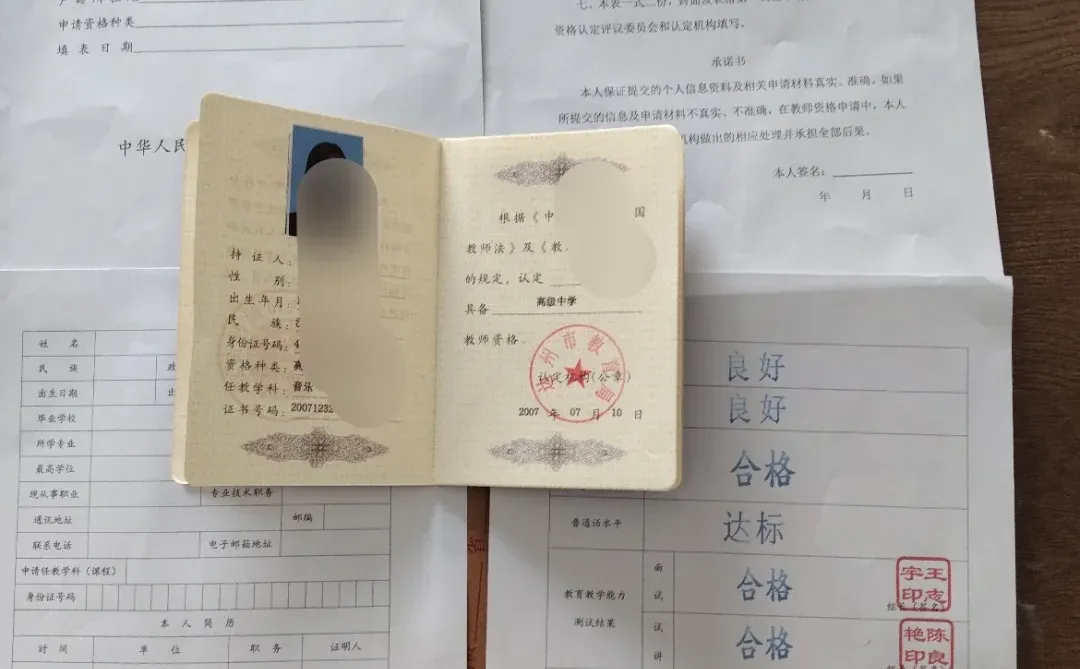 申请资格种类
填表日期
中华人民
资格认定评议委员会和认定机构填写。
承诺书
本人保证提交的个人信息资料及相关申请材料真实、准确、如果
所提交的信息及申请材料不真实、不准确，在教师资格申请中，本人
机构做出的相应处理并承担全部后果。
本人签名：
年 月 日
持证人：
性别：
出生年月：
民族：
身份证号码：4
资格种类：高
任教学科：音乐
证书号码：20071232
根据《中 国
教师法》及《教
的规定，认定
具备 高级中学
教师资格。
州市教育局
认定机构(公章)
2007 年 07 月 10 日
姓名
民族
出生日期
毕业学校
所学专业
最高学位
现从事职业
专业技术职务
通讯地址
邮编
联系电话
电子邮箱地址
申请任教学科（课程）
身份证号码
本人简历
时间 单位 职务 证明人
良好
良好
合格
普通话水平
达标
教育教学能力
测试结果
面试
合格
试讲
合格
王志宇印
组长（签名）
陈良艳印